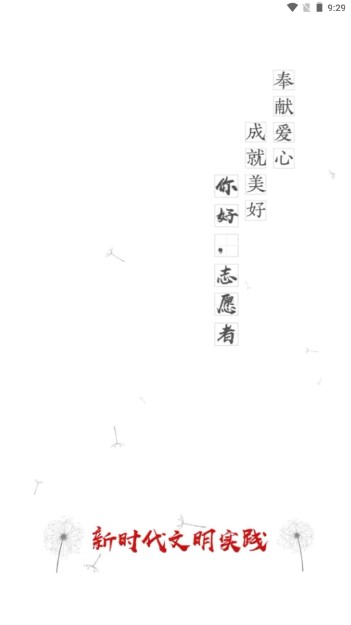 9:29
奉献爱心
成就美好
你好，志愿者
新时代文明实践